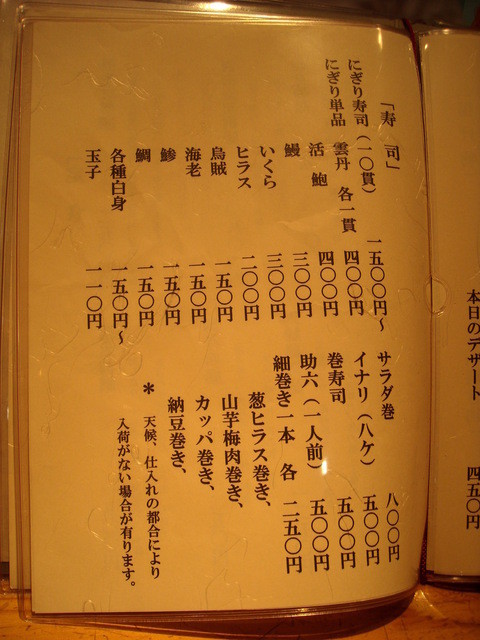 「寿 司」
にぎり寿司（一〇貫） 一五〇〇円～
にぎり単品 雲丹 各一貫 四〇〇円
活 鮑 四〇〇円
鰻 三〇〇円
いくら 三〇〇円
ヒラス 二〇〇円
烏賊 一五〇円
海老 一五〇円
鯵 一五〇円
鯛 一五〇円
各種白身 一五〇円～
玉子 一一〇円
サラダ巻 八〇〇円
イナリ（八ケ） 五〇〇円
巻寿司 五〇〇円
助六（一人前） 五〇〇円
細巻き一本 各 二五〇円
葱ヒラス巻き、
山芋梅肉巻き、
カッパ巻き、
納豆巻き、
＊ 天候、仕入れの都合により
入荷がない場合が有ります。
本日のデザート 四五〇円